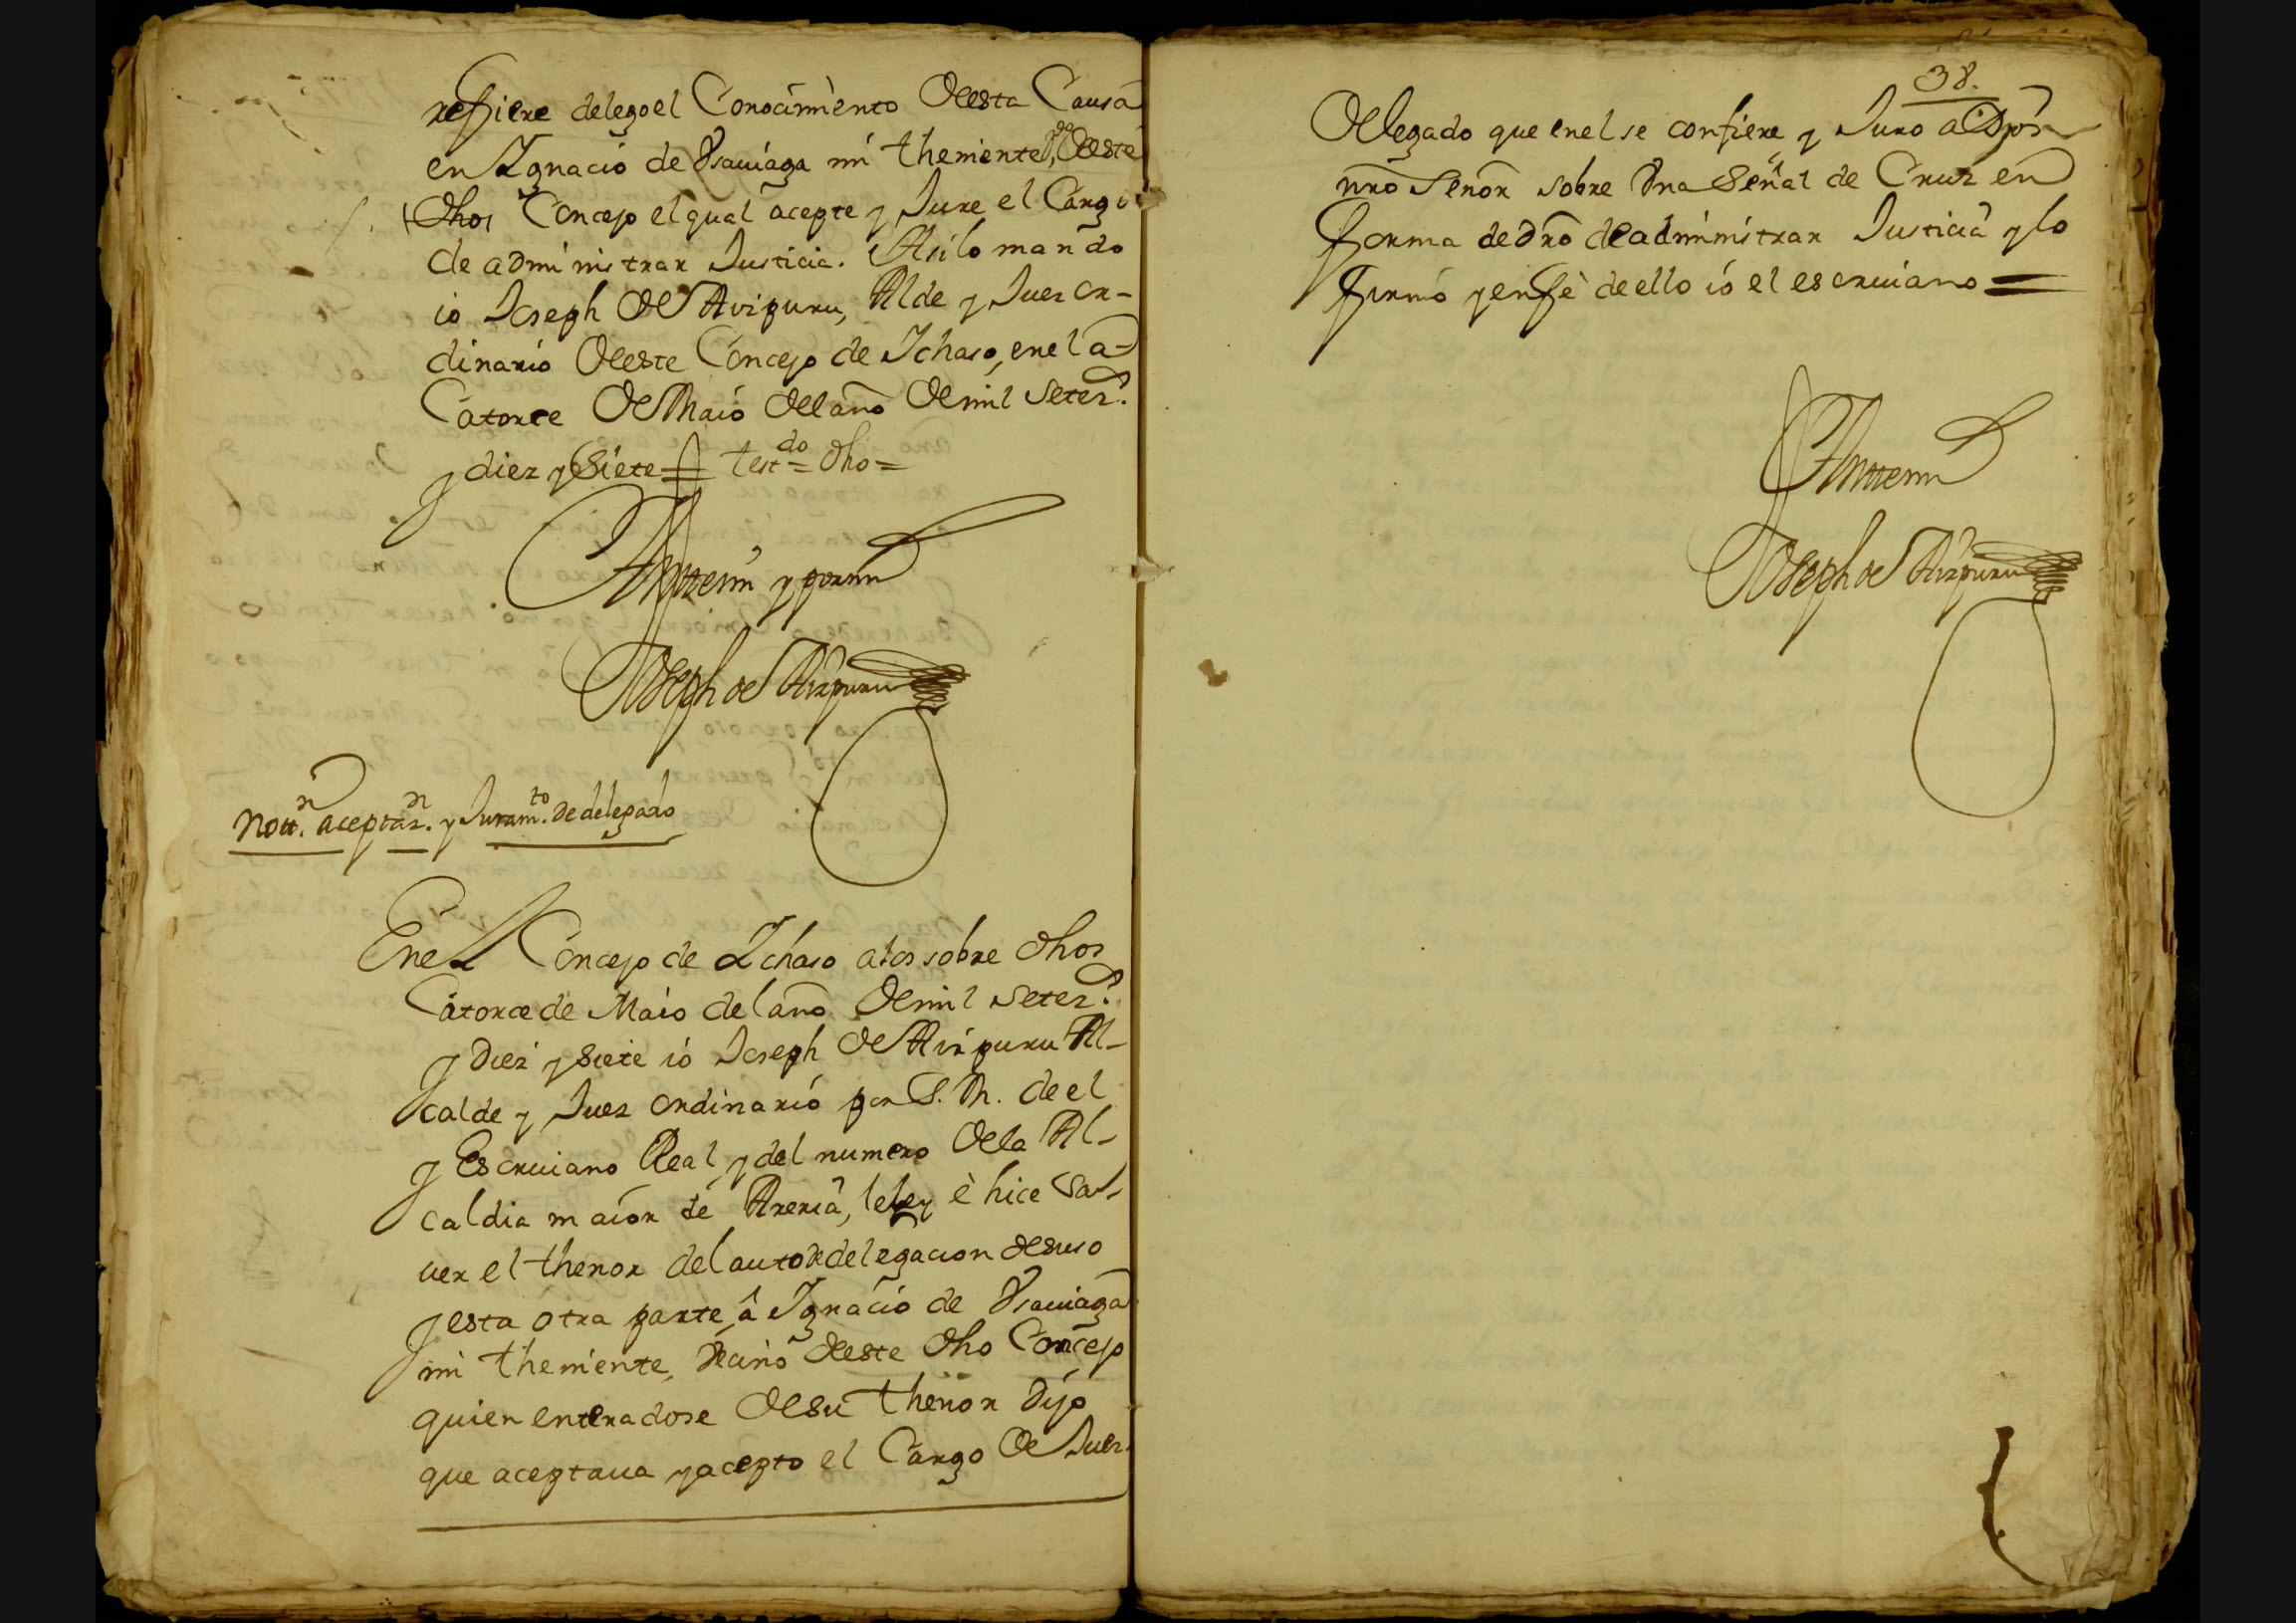 refiere delego el Conocimiento Desta Causa
en Ygnacio de Vsauiaga mi theniente, Deste
dhos Concejo el qual acepte y Jure el Cargo
de administrar Justicia. Assi lo mando
io Joseph De Aizpuru, Alde y Juez or-
dinario Deste Concejo de Ychaso, en el a
Catorce De Maio del año De mil Setez.s
y diez y Siete = test.do = dho =
Ante mi y por mi
Joseph de Aizpuru
Nott.n aceptaz.n y Juram.to de delegado
En el Concejo de Ychaso a los sobre dhos
Catorce de Maio del año De mil setez.s
y Diez y siete io Joseph De Aizpuru Al-
calde y Juez ordinario por S. M. de el
y Escriuiano Real y del numero De la Al-
caldia maior de Areria, leley è hice sa-
uer el thenor del auto de delegacion desuso
y esta otra parte, â Ygnacio de Vsauiaga
mi theniente, Vecino deste dho Concejo
quien enteradose De su thenor Dijo
que aceptaua y acepto el Cargo De Juez
38.
Delegado que en el se confiere y Juro a Dios
nrô Señor sobre Vna Señal de Cruz en
forma de drô de administrar Justicia y lo
firmó y en fè de ello ió el escriuiano =
Ante mi
Joseph de Aizpuru